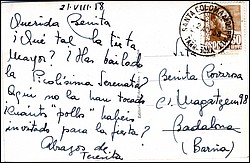 21-VIII-58
Querida Benita
¿Qué tal la fiesta
Mayor? ¿Has bailado
la Picolísima Serenata?
Aquí no la han tocado
¿Cuántos "pollos" habéis
invitado para la fiesta?
Abrazos de
SANTA COLOMA
Benita
C. Magatzem 98
Badalona
(Barna)